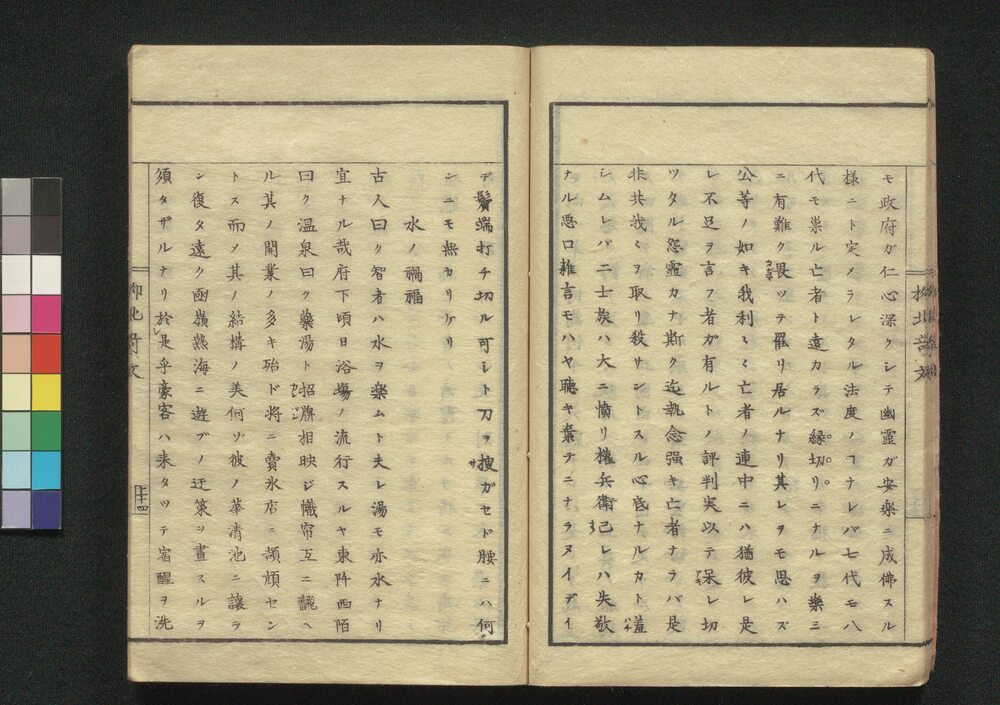 モ政府ガ仁心深クシテ幽霊ガ安楽ニ成佛スル
様ニト定メラレタル法度ノヿナレバ七代モ八
代モ祟ル亡者ト遠カラズ縁切リニナルヲ樂ミ
ニ有難ク畏ツテ罷リ居ルナリ其レヲモ思ハズ
公等ノ如キ我利〻〻亡者ノ連中ニハ猶彼レ是
レ不足ヲ言フ者ガ有ルトノ評判実以テ呆レ切
ツタル怨霊カナ斯ク迄執念强キ亡者ナラバ是
非共我〻ヲ取リ殺サントスル心底ナルカト羞
シムレバ二士族ハ大ニ憤リ権兵衛己レハ失敬
ナル悪口雑言モハヤ聴キ棄テニナラヌイデイ
柳北詩文
デ鬢端打チ切ル可シト刀ヲ捜ガセド腰ニハ何
ンニモ無カリケリ
水ノ禍福
古人曰ク智者ハ水ヲ楽ムト夫レ湯モ亦水ナリ
宜ナル哉府下頃日浴塲ノ流行スルヤ東阡西陌
曰ク温泉曰ク藥湯ト招牌相映ジ幟帘互ニ飜ヘ
ル其ノ開業ノ多キ殆ド將ニ賣氷店ニ頡頏セン
トス而ノ其ノ結構ノ美何ゾ彼ノ華清池ニ讓ラ
ン復タ遠ク函嶺熱海ニ遊ブノ迂策ヲ畫スルヲ
須タザルナリ於是乎豪客ハ来タツテ宿酲ヲ洗
二十四